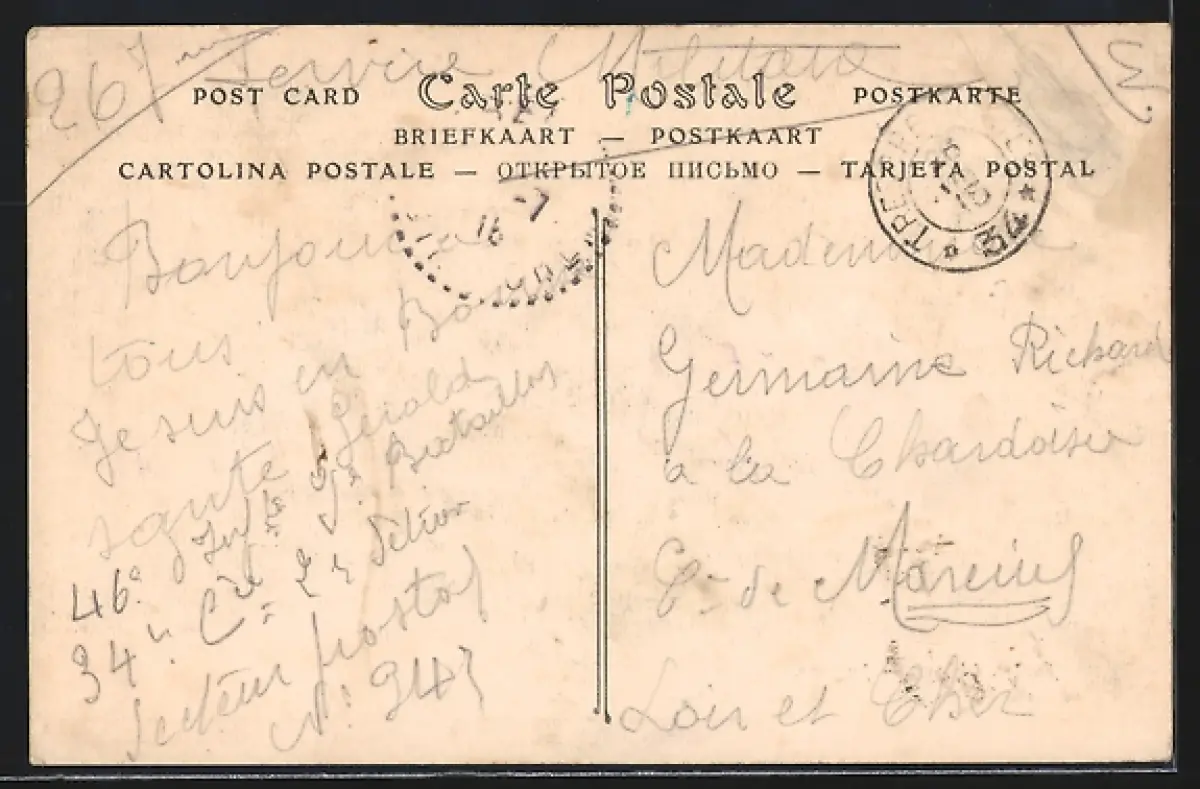 267
Service Militaire
POST CARD Carte Postale POSTKARTE
BRIEFKAART — POSTKAART
CARTOLINA POSTALE — ОТКРЫТОЕ ПИСЬМО — TARJETA POSTAL
16 - 7
Bonjour a
tous
Je suis en Bonne
sante Gerald
46e Infie 9e Bataillon
34e Cie 2e Section
Secteur postal
N°
Mademoiselle
Germaine Richard
a la Chardoise
Cne de Mareuil
Loir et Cher